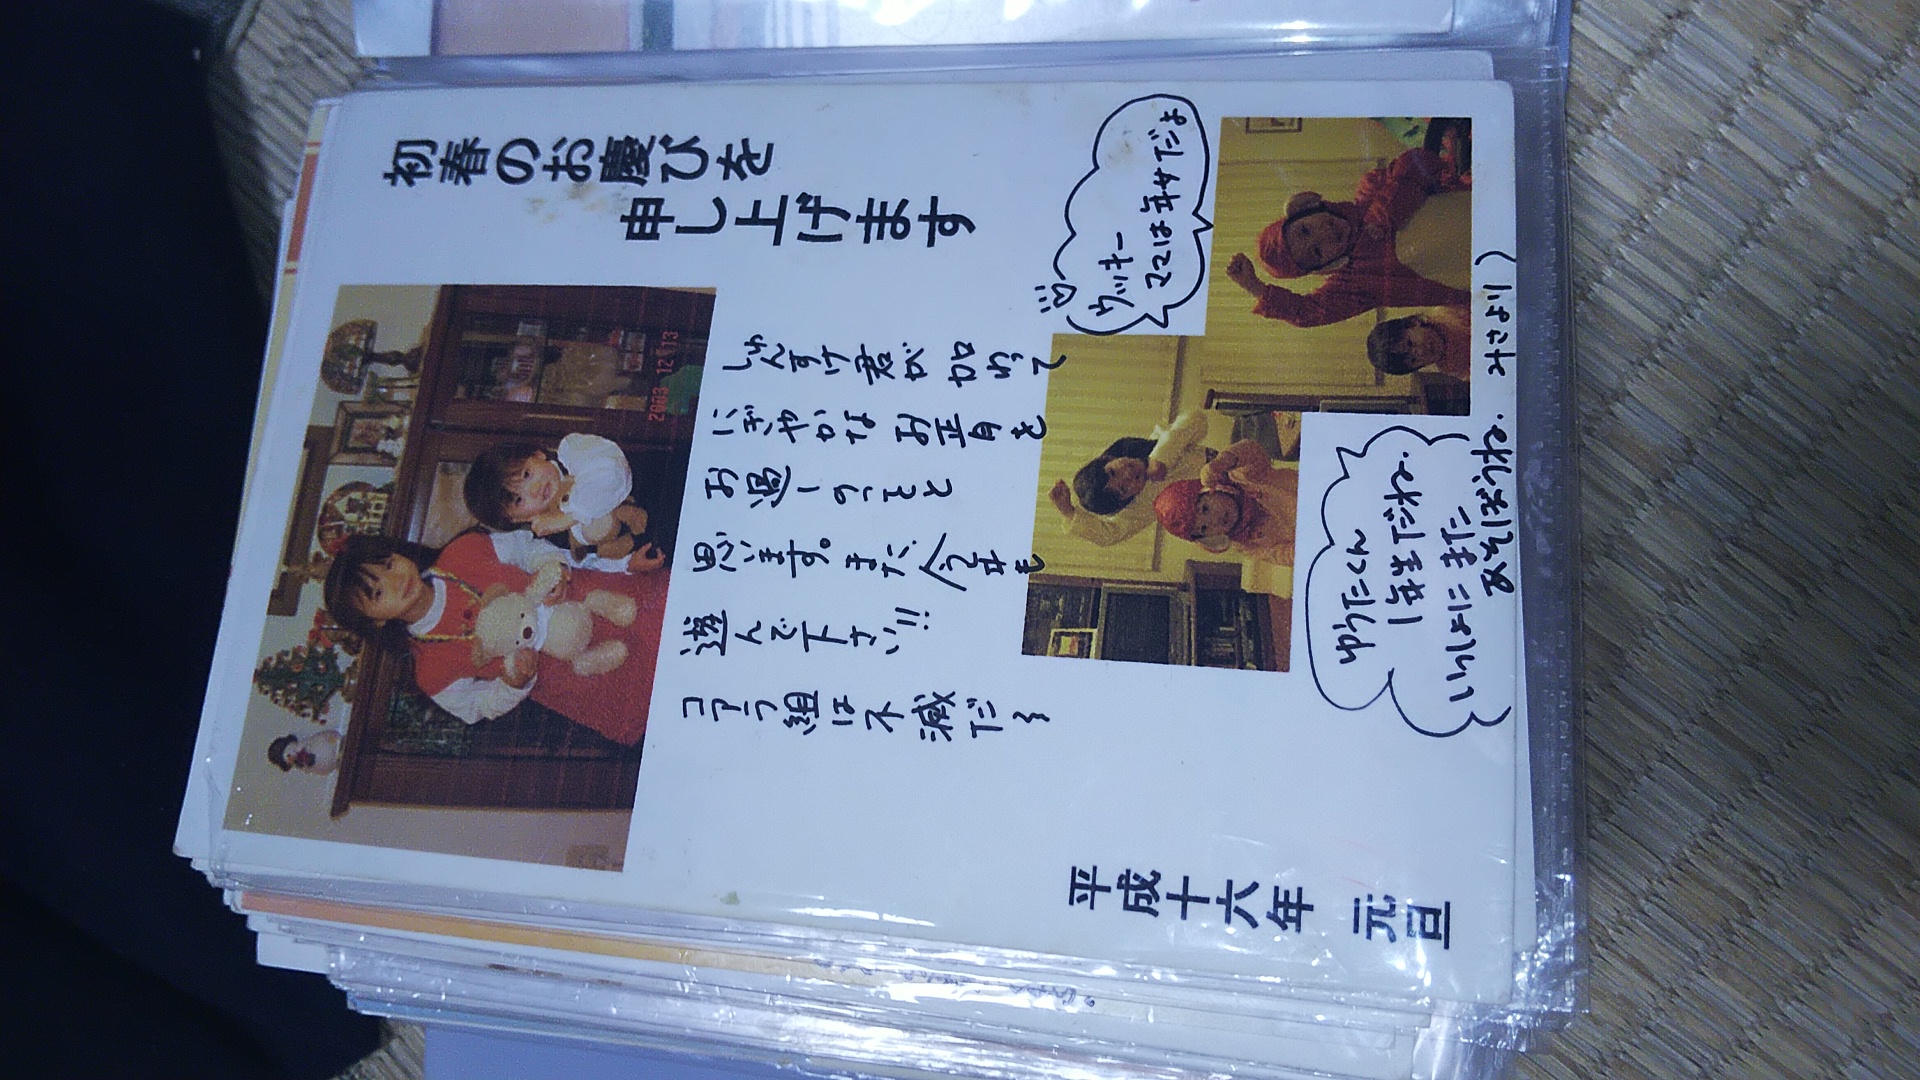 初春のお慶びを
申し上げます
2003 12 13
しゅんすけ君が加わって
にぎやかなお正月を
お過しのことと
思います。また、今年も
遊んで下さい!!
コアラ組は不滅だ〜
ウッキー
ママは年女だよ
ゆうたくん
1年生だね。
いっしょにまた
あそぼうね。
みさより)
平成十六年 元旦